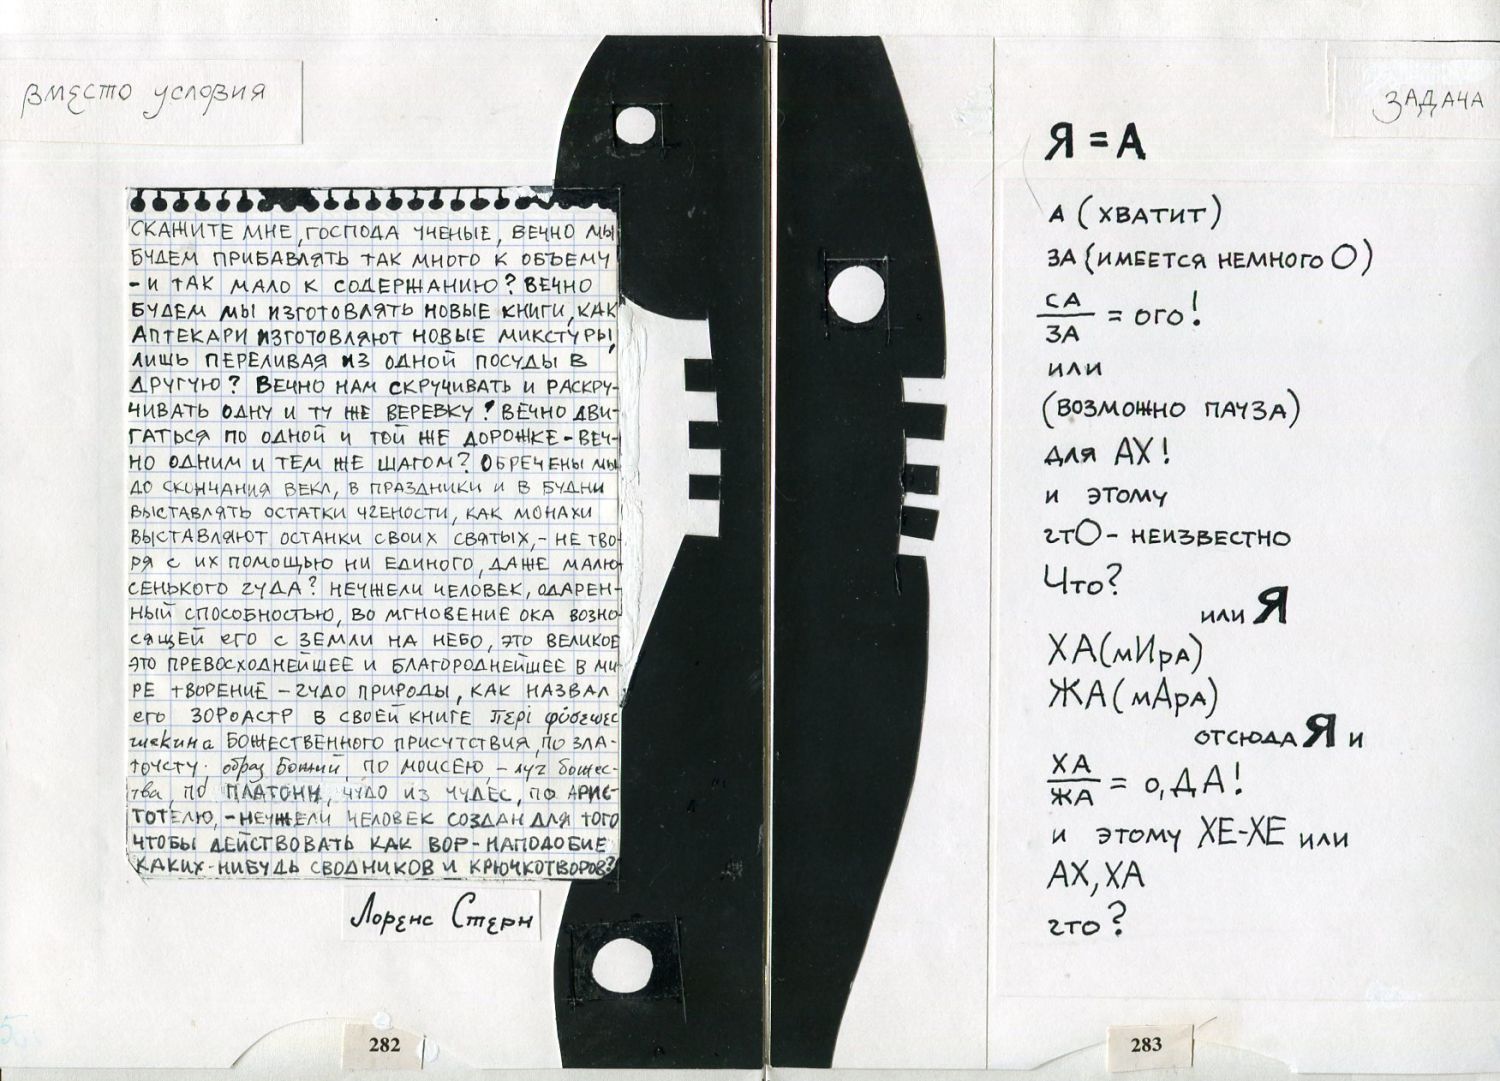 вместо условия
СКАЖИТЕ МНЕ, ГОСПОДА УЧЕНЫЕ, ВЕЧНО МЫ
БУДЕМ ПРИБАВЛЯТЬ ТАК МНОГО К ОБЪЕМУ
- И ТАК МАЛО К СОДЕРЖАНИЮ? ВЕЧНО
БУДЕМ МЫ ИЗГОТОВЛЯТЬ НОВЫЕ КНИГИ, КАК
АПТЕКАРИ ИЗГОТОВЛЯЮТ НОВЫЕ МИКСТУРЫ,
ЛИШЬ ПЕРЕЛИВАЯ ИЗ ОДНОЙ ПОСУДЫ В
ДРУГУЮ? ВЕЧНО НАМ СКРУЧИВАТЬ И РАСКРУ-
ЧИВАТЬ ОДНУ И ТУ ЖЕ ВЕРЕВКУ? ВЕЧНО ДВИ-
ГАТЬСЯ ПО ОДНОЙ И ТОЙ ЖЕ ДОРОЖКЕ - ВЕЧ-
НО ОДНИМ И ТЕМ ЖЕ ШАГОМ? ОБРЕЧЕНЫ МЫ
ДО СКОНЧАНИЯ ВЕКА, В ПРАЗДНИКИ И В БУДНИ
ВЫСТАВЛЯТЬ ОСТАТКИ УЧЕНОСТИ, КАК МОНАХИ
ВЫСТАВЛЯЮТ ОСТАНКИ СВОИХ СВЯТЫХ, - НЕ ТВО-
РЯ С ИХ ПОМОЩЬЮ НИ ЕДИНОГО, ДАЖЕ МАЛЮ
СЕНЬКОГО ЧУДА? НЕУЖЕЛИ ЧЕЛОВЕК, ОДАРЕН-
НЫЙ СПОСОБНОСТЬЮ, ВО МГНОВЕНИЕ ОКА ВОЗНО-
СЯЩЕЙ ЕГО С ЗЕМЛИ НА НЕБО, ЭТО ВЕЛИКОЕ
ЭТО ПРЕВОСХОДНЕЙШЕЕ И БЛАГОРОДНЕЙШЕЕ В МИ-
РЕ ТВОРЕНИЕ - ЧУДО ПРИРОДЫ, КАК НАЗВАЛ
ЕГО ЗОРОАСТР В СВОЕЙ КНИГЕ Περί φύσεως
шекина БОЖЕСТВЕННОГО ПРИСУТСТВИЯ, ПО ЗЛА-
ТОУСТУ. образ Божий, ПО МОИСЕЮ, - луч божес-
тва, ПО ПЛАТОНУ, ЧУДО ИЗ ЧУДЕС, ПО АРИС-
ТОТЕЛЮ, - НЕУЖЕЛИ ЧЕЛОВЕК СОЗДАН ДЛЯ ТОГО
ЧТОБЫ ДЕЙСТВОВАТЬ КАК ВОР - НАПОДОБИЕ
КАКИХ-НИБУДЬ СВОДНИКОВ И КРЮЧКОТВОРОВ?
Лоренс Стерн
282
ЗАДАЧА
Я = А
А (ХВАТИТ)
ЗА (ИМЕЕТСЯ НЕМНОГО О)
СА
ЗА = ОГО!
ИЛИ
(ВОЗМОЖНО ПАУЗА)
ДЛЯ АХ!
И ЭТОМУ
ЧТО - НЕИЗВЕСТНО
ЧТО?
ИЛИ Я
ХА (МИРА)
ЖА (МАРА)
ОТСЮДА Я И
ХА
ЖА = О, ДА!
И ЭТОМУ ХЕ-ХЕ ИЛИ
АХ, ХА
ЧТО?
283